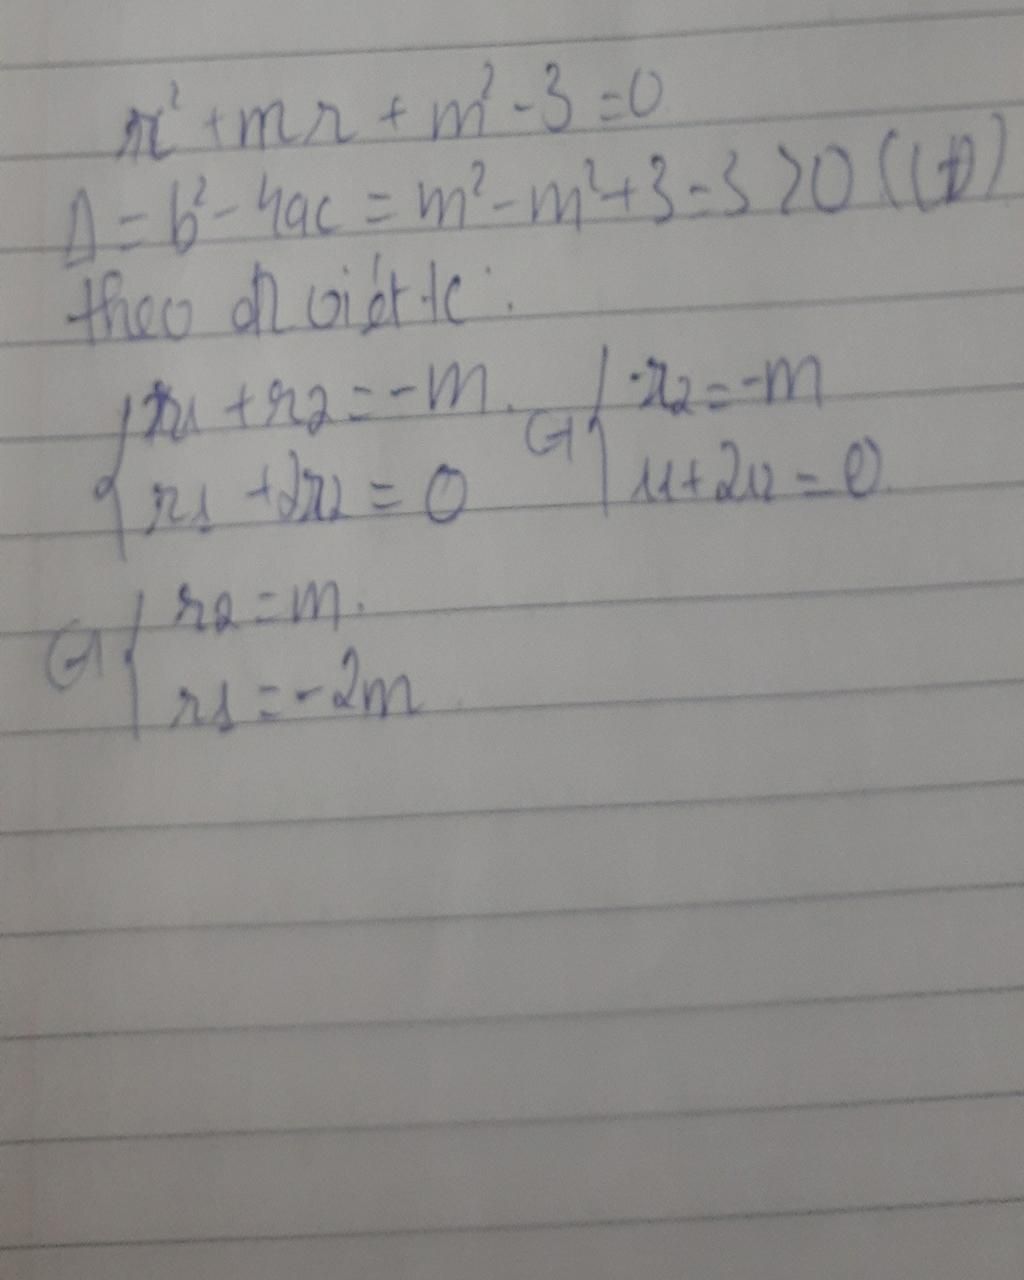 x² + mx + m² - 3 = 0
Δ = b² - 4ac = m² - m² + 3 = 3 > 0 (LĐ)
theo đl viét tc:
{ x1 + x2 = -m. <=> { -x2 = -m
{ x1 + 2x2 = 0 { x1 + 2x2 = 0
<=> { x2 = m.
{ x1 = -2m